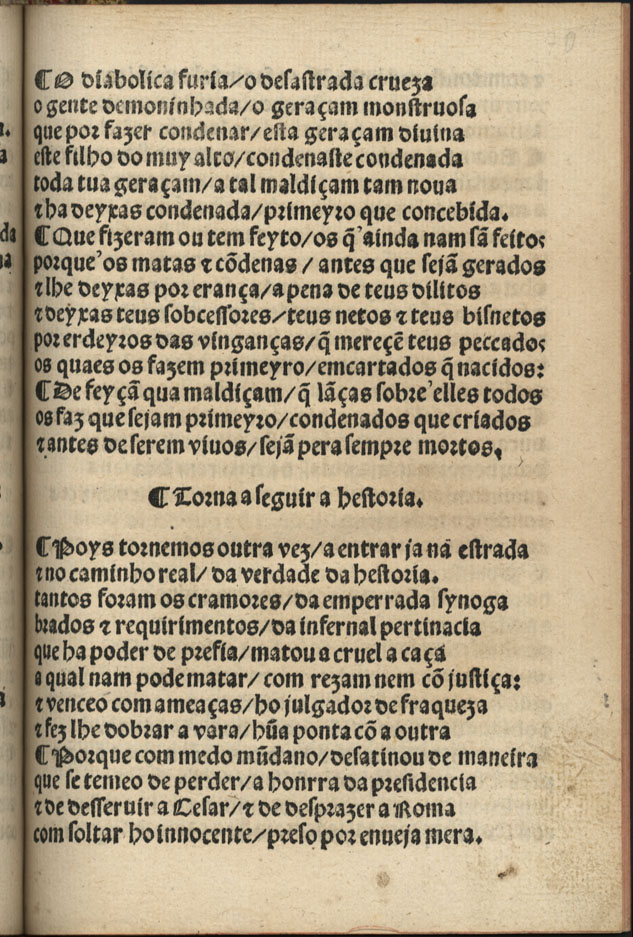 ¶O diabolica furia/o desastrada crueza
o gente demoninhada/o geraçam monstruosa
que por fazer condenar/esta geraçam diuina
este filho do muy alto/condenaste condenada
toda tua geraçam/a tal maldiçam tam noua
⁊ ha deyxas condenada/primeyro que concebida.
¶Que fizeram ou tem feyto/os q̃ ainda nam sã feitos
porque os matas ⁊ cõdenas / antes que sejã gerados
⁊ lhe deyxas por erança/a pena de teus dilitos
⁊ deyxas teus sobcessores/teus netos ⁊ teus bisnetos
por erdeyros das vinganças/q̃ mereçẽ teus peccados
os quaes os fazem primeyro/emcartados q̃ nacidos:
¶De feyçã qua maldiçam/q̃ lãças sobre elles todos
os faz que sejam primeyro/condenados que criados
⁊ antes de serem viuos/sejã pera sempre mortos.
¶Torna a seguir a hestoria.
¶Poys tornemos outra vez/a entrar ja nã estrada
⁊ no caminho real/ da verdade da hestoria.
tantos foram os cramores/da emperrada synoga
brados ⁊ requirimentos/da infernal pertinacia
que ha poder de prefia/matou a cruel a caça
a qual nam pode matar/ com rezam nem cõ justiça:
⁊ venceo com ameaças/ho julgador de fraqueza
⁊ fez lhe dobrar a vara/hũa ponta cõ a outra
¶Porque com medo mũdano/desatinou de maneira
que se temeo de perder/a honrra da presidencia
⁊ de desseruir a Cesar/⁊ de desprazer a Roma
com soltar ho innocente/preso por enueja mera.